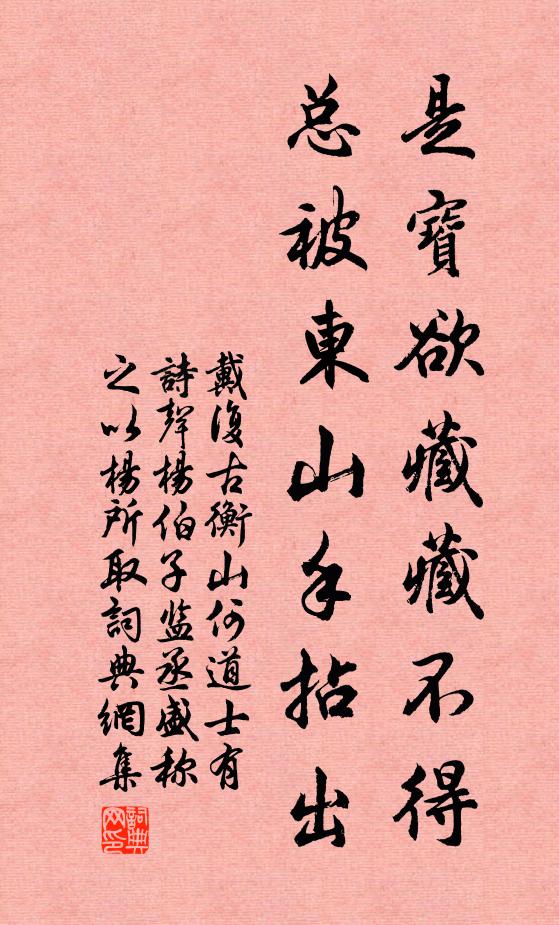 是寶欲藏藏不得
总被東山手拈出
戴復古衡山何道士有
詩聲楊伯子监丞盛称
之以楊所取詞典網集
詞典网印